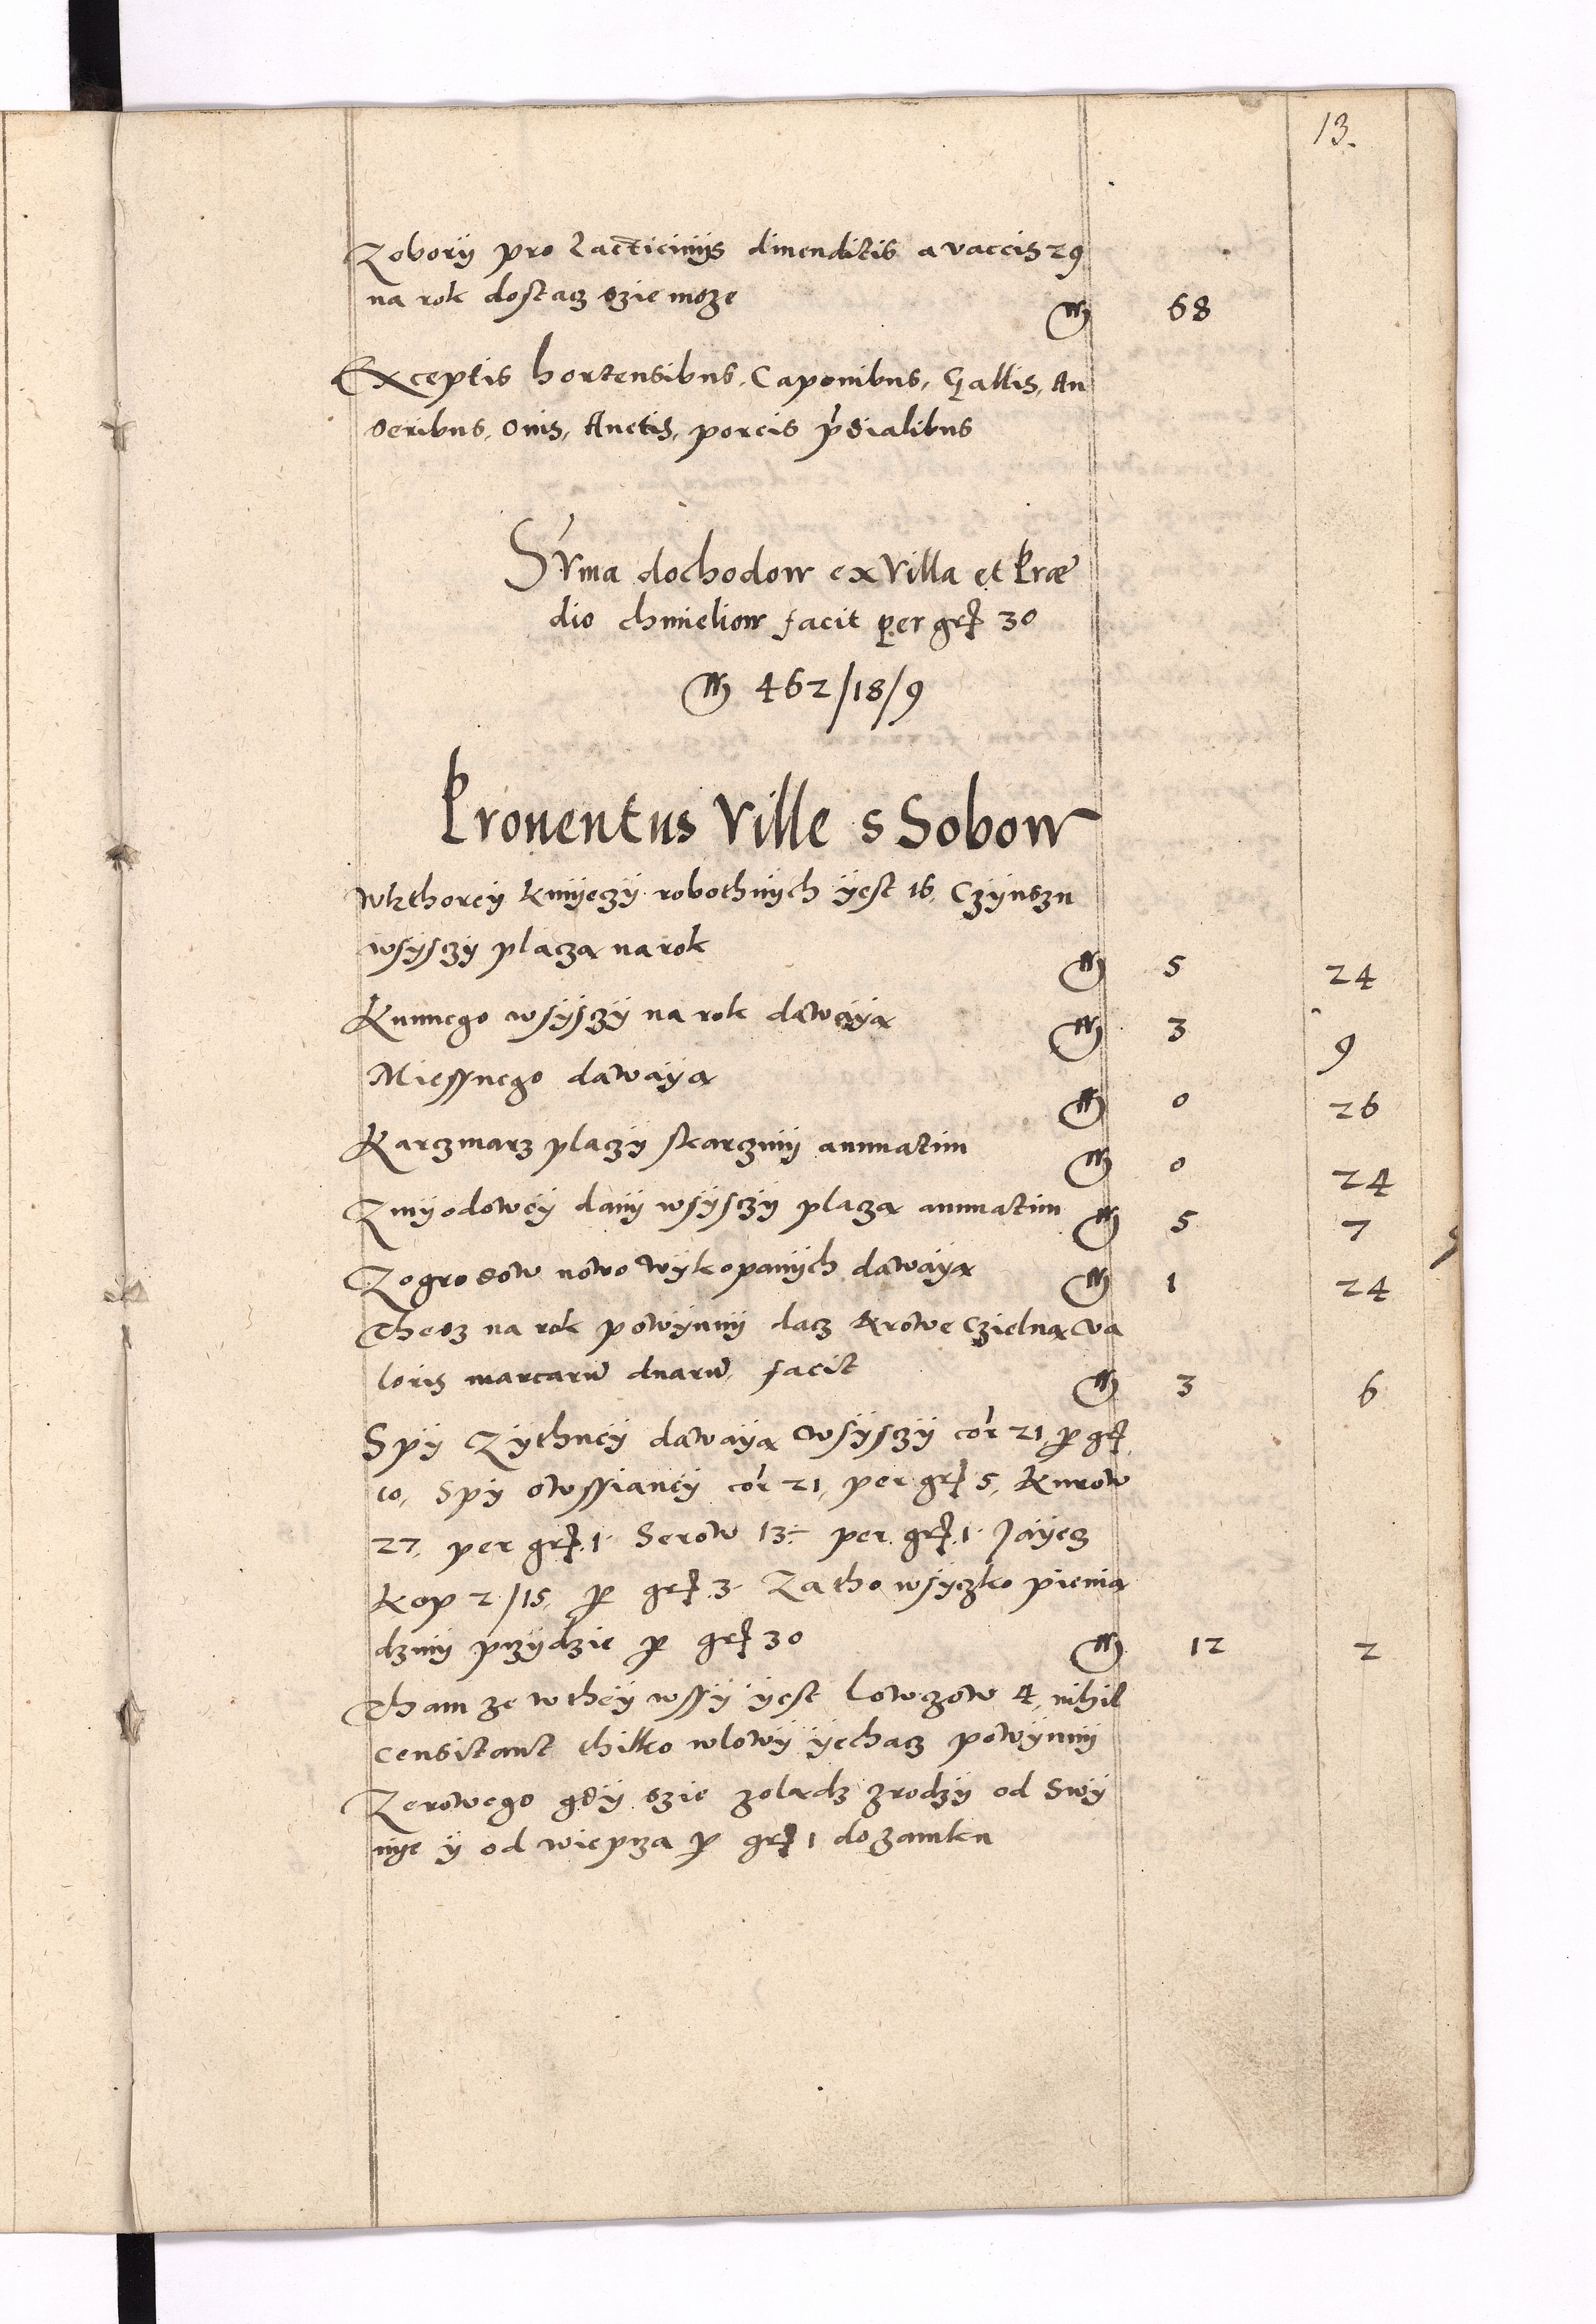 13.
Zobory pro lacticiniis divenditis a vaccis 29
na rok dostacz szie moze 68
Exceptis hortensibus, Caponibus, Gallis, An
seribus, Ovis, Auctis, porcis p̄dialibus
Sūma dochodow ex Villa et Præ
dio chmieliow facit per gr 30
462/18/9
Proventus Ville s Sobow
Wkthorey kmyeczy robothnych yest 16, Czynszu
wsysczy placza na rok 5 24
Kunnego wsysczy na rok dawaya 3 9
Miessnego dawaya 0 26
Karczmarz placzy skarczmy annuatim 0 24
Zmyodowey dany wsysczy placza annuatim 5 7
Zogrodow nowo wykopanych dawaya 1 24
Thesz na rok powynny dacz krowe Czielna va
loris marcarū duarū, facit 3 6
Spy Zythney dawaya wsysczy cor 21 p gr
10, Spy owssianey cor 21, per gr 5, Kurow
27, per gr 1. Serow 13 ÷ per gr 1. Jayecz
Kop 2/15, p gr 3. Za tho wsyczko pienia
dzmy przydzie p gr 30 12 2
Tham ze w they wssy yest lowczow 4, nihil
censitant thilko wlowy yechacz powynny
Zerowego gdy szie zoladz zrodzy od Swy
nye y od wieprza p gr 1 do zamku